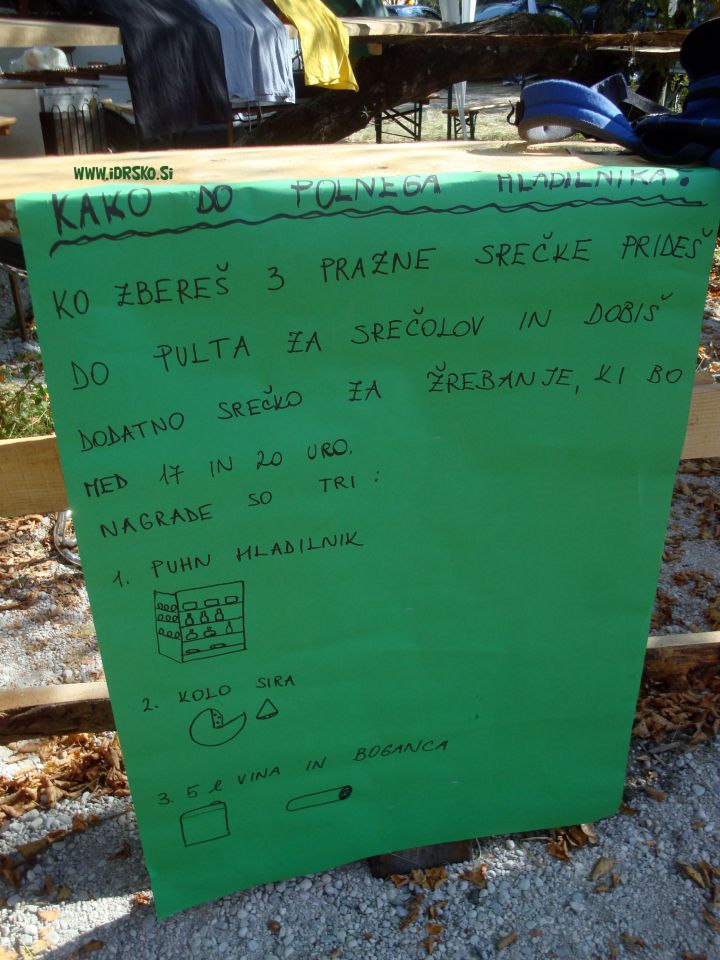 WWW.iDRSKO.Si
KAKO DO POLNEGA HLADILNIKA?
KO ZBEREŠ 3 PRAZNE SREČKE PRIDEŠ
DO PULTA ZA SREČOLOV IN DOBIŠ
DODATNO SREČKO ZA ŽREBANJE, KI BO
MED 17 IN 20 URO.
NAGRADE SO TRI :
1. PUHN HLADILNIK
2. KOLO SIRA
3. 5 l VINA IN BOGANCA